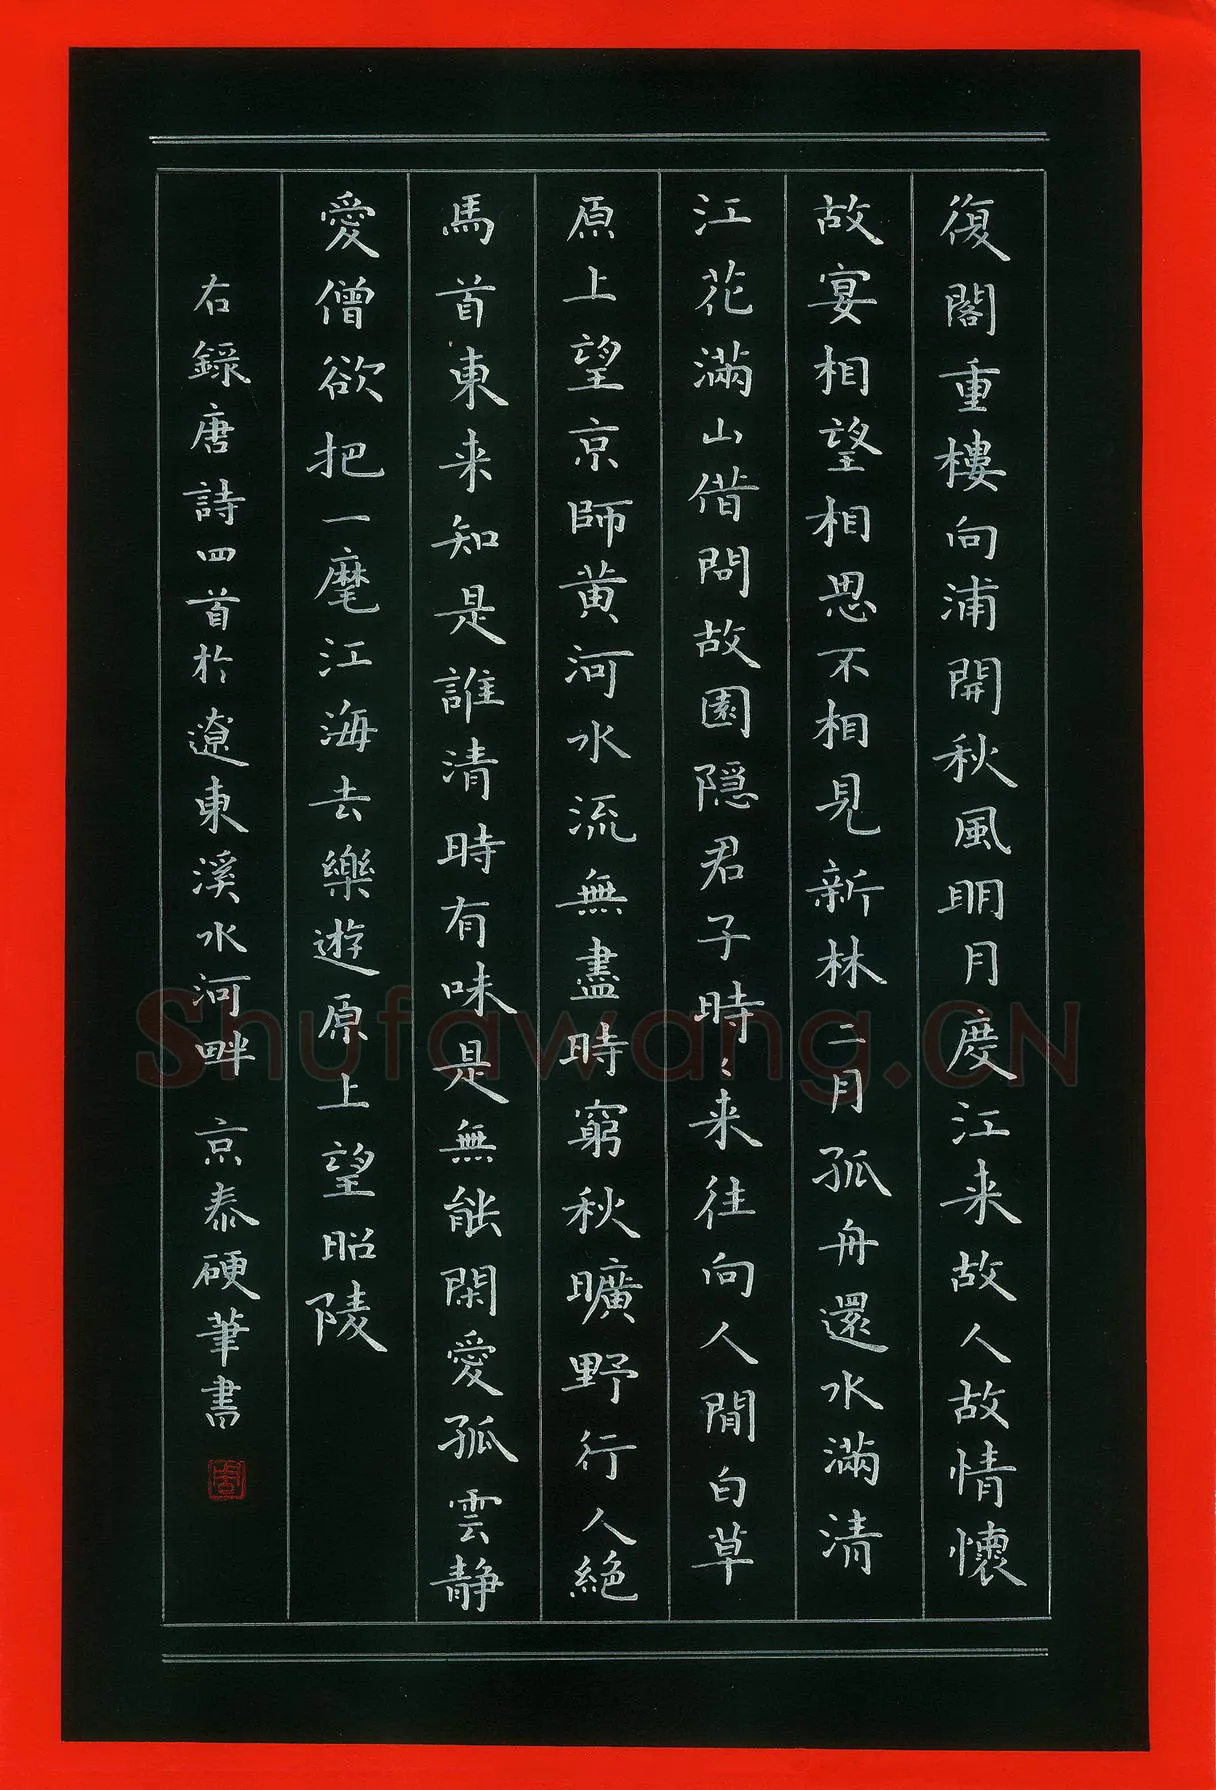 復閣重樓向浦開秋風明月度江来故人故情懷
故宴相望相思不相見新林二月孤舟還水滿清
江花滿山借問故園隠君子時々来往向人閒白草
原上望京師黄河水流無盡時窮秋曠野行人絶
馬首東来知是誰清時有味是無能閑愛孤雲静
愛僧欲把一麾江海去樂遊原上望昭陵
右録唐詩四首於遼東溪水河畔 京泰硬筆書
Shufawang.CN